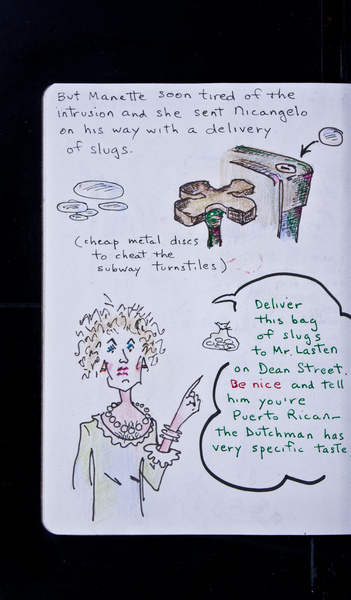 But Manette soon tired of the
intrusion and she sent Nicangelo
on his way with a delivery
of slugs.
(cheap metal discs
to cheat the
subway turnstiles)
Deliver
this bag
of slugs
to Mr. Lasten
on Dean Street.
Be nice and tell
him you're
Puerto Rican—
the Dutchman has
very specific taste